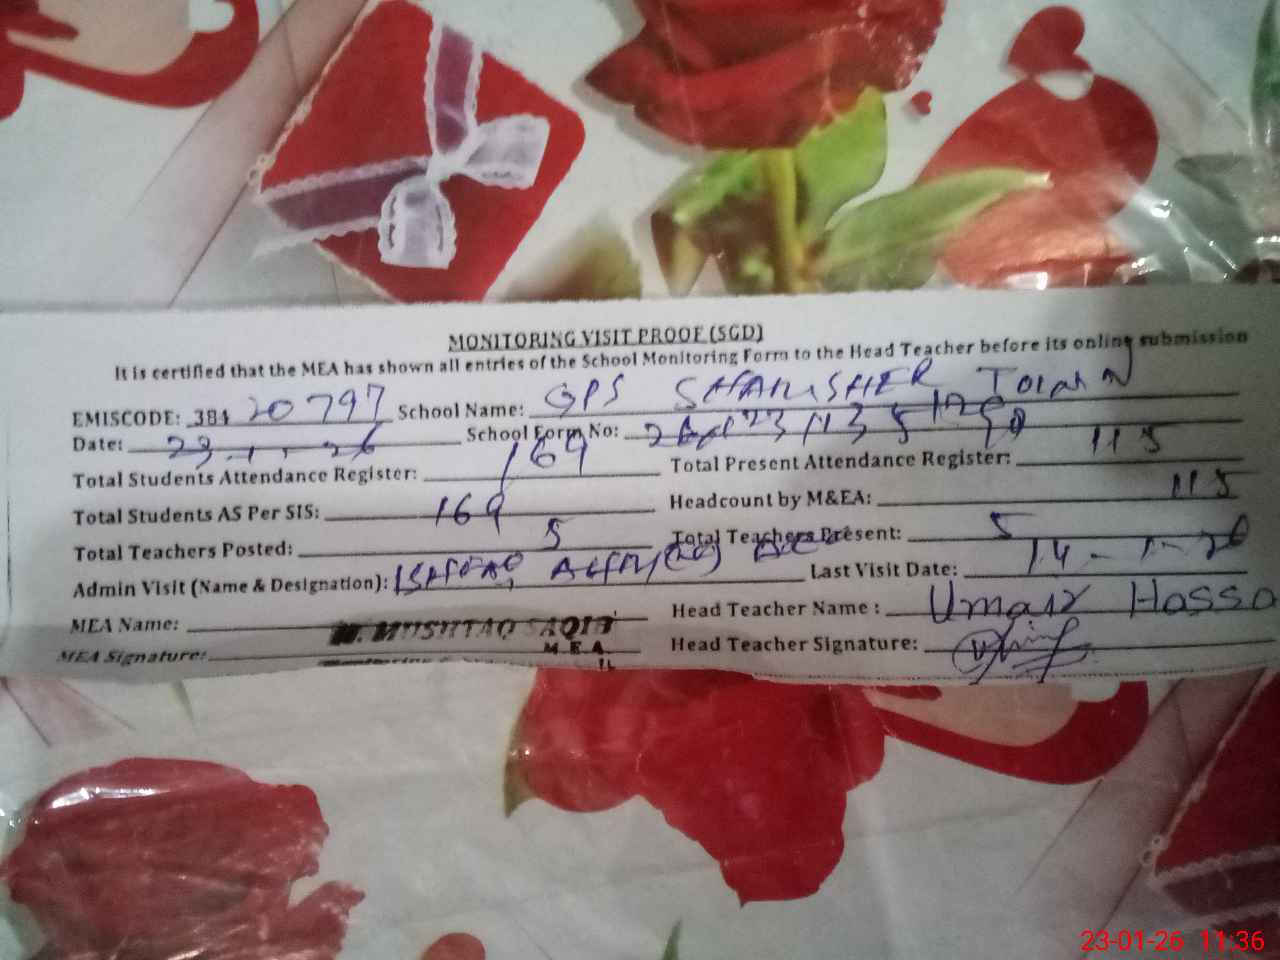 MONITORING VISIT PROOF (SGD)
It is certified that the MEA has shown all entries of the School Monitoring Form to the Head Teacher before its online submission
EMISCODE: 384 20797 School Name: GPS SHAMSHER Town
Date: 23-1-26 School Form No:
Total Students Attendance Register: 169 Total Present Attendance Register: 115
Total Students AS Per SIS: 169 Headcount by M&EA: 115
Total Teachers Posted: 5 Total Teachers Present: 5
Admin Visit (Name & Designation): Last Visit Date: 14-1-26
MEA Name: MUSHTAQ SAQIB Head Teacher Name : Umair Hassa
M.E.A
MEA Signature: Head Teacher Signature:
23-01-26 11:36